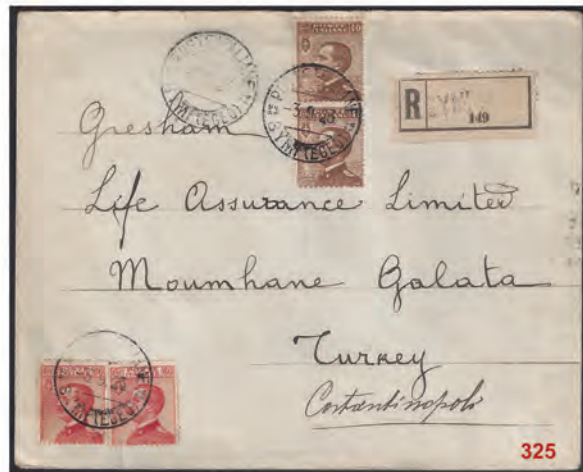 R
149
Gresham
Life Assurance Limited
Moumhane Galata
Turkey
Costantinopoli
325